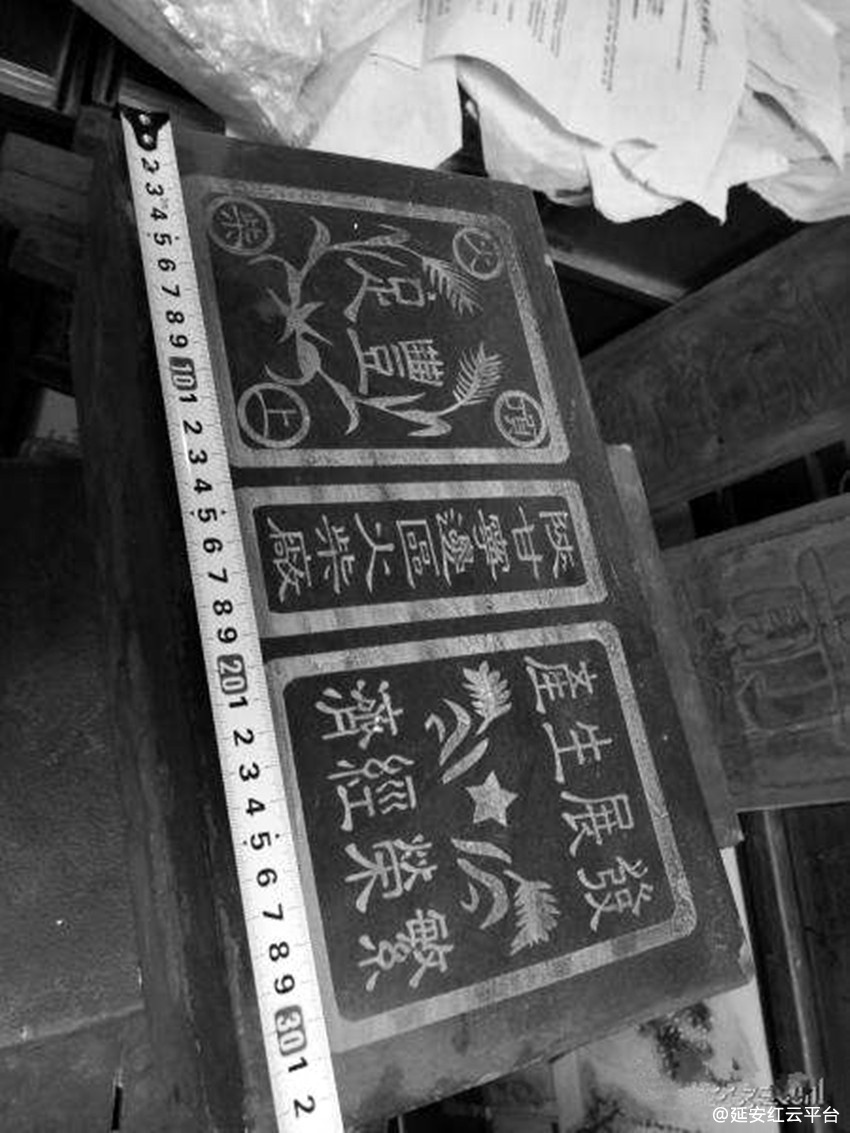 頂上
火柴
豐足
陝甘寧邊區火柴廠
發展生產
繁榮經濟
2 3 4 5 6 7 8 9 10 1 2 3 4 5 6 7 8 9 20 1 2 3 4 5 6 7 8 9 30 1 2
@延安红云平台